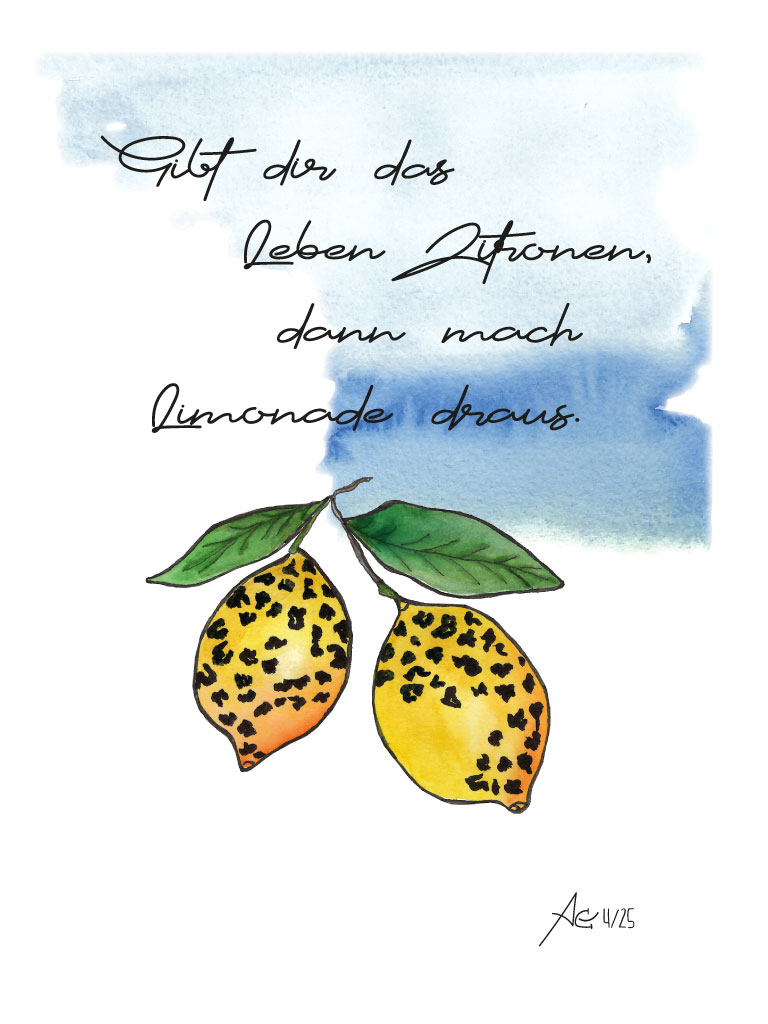 Gibt dir das
Leben Zitronen,
dann mach
Limonade draus.
AC 4/25